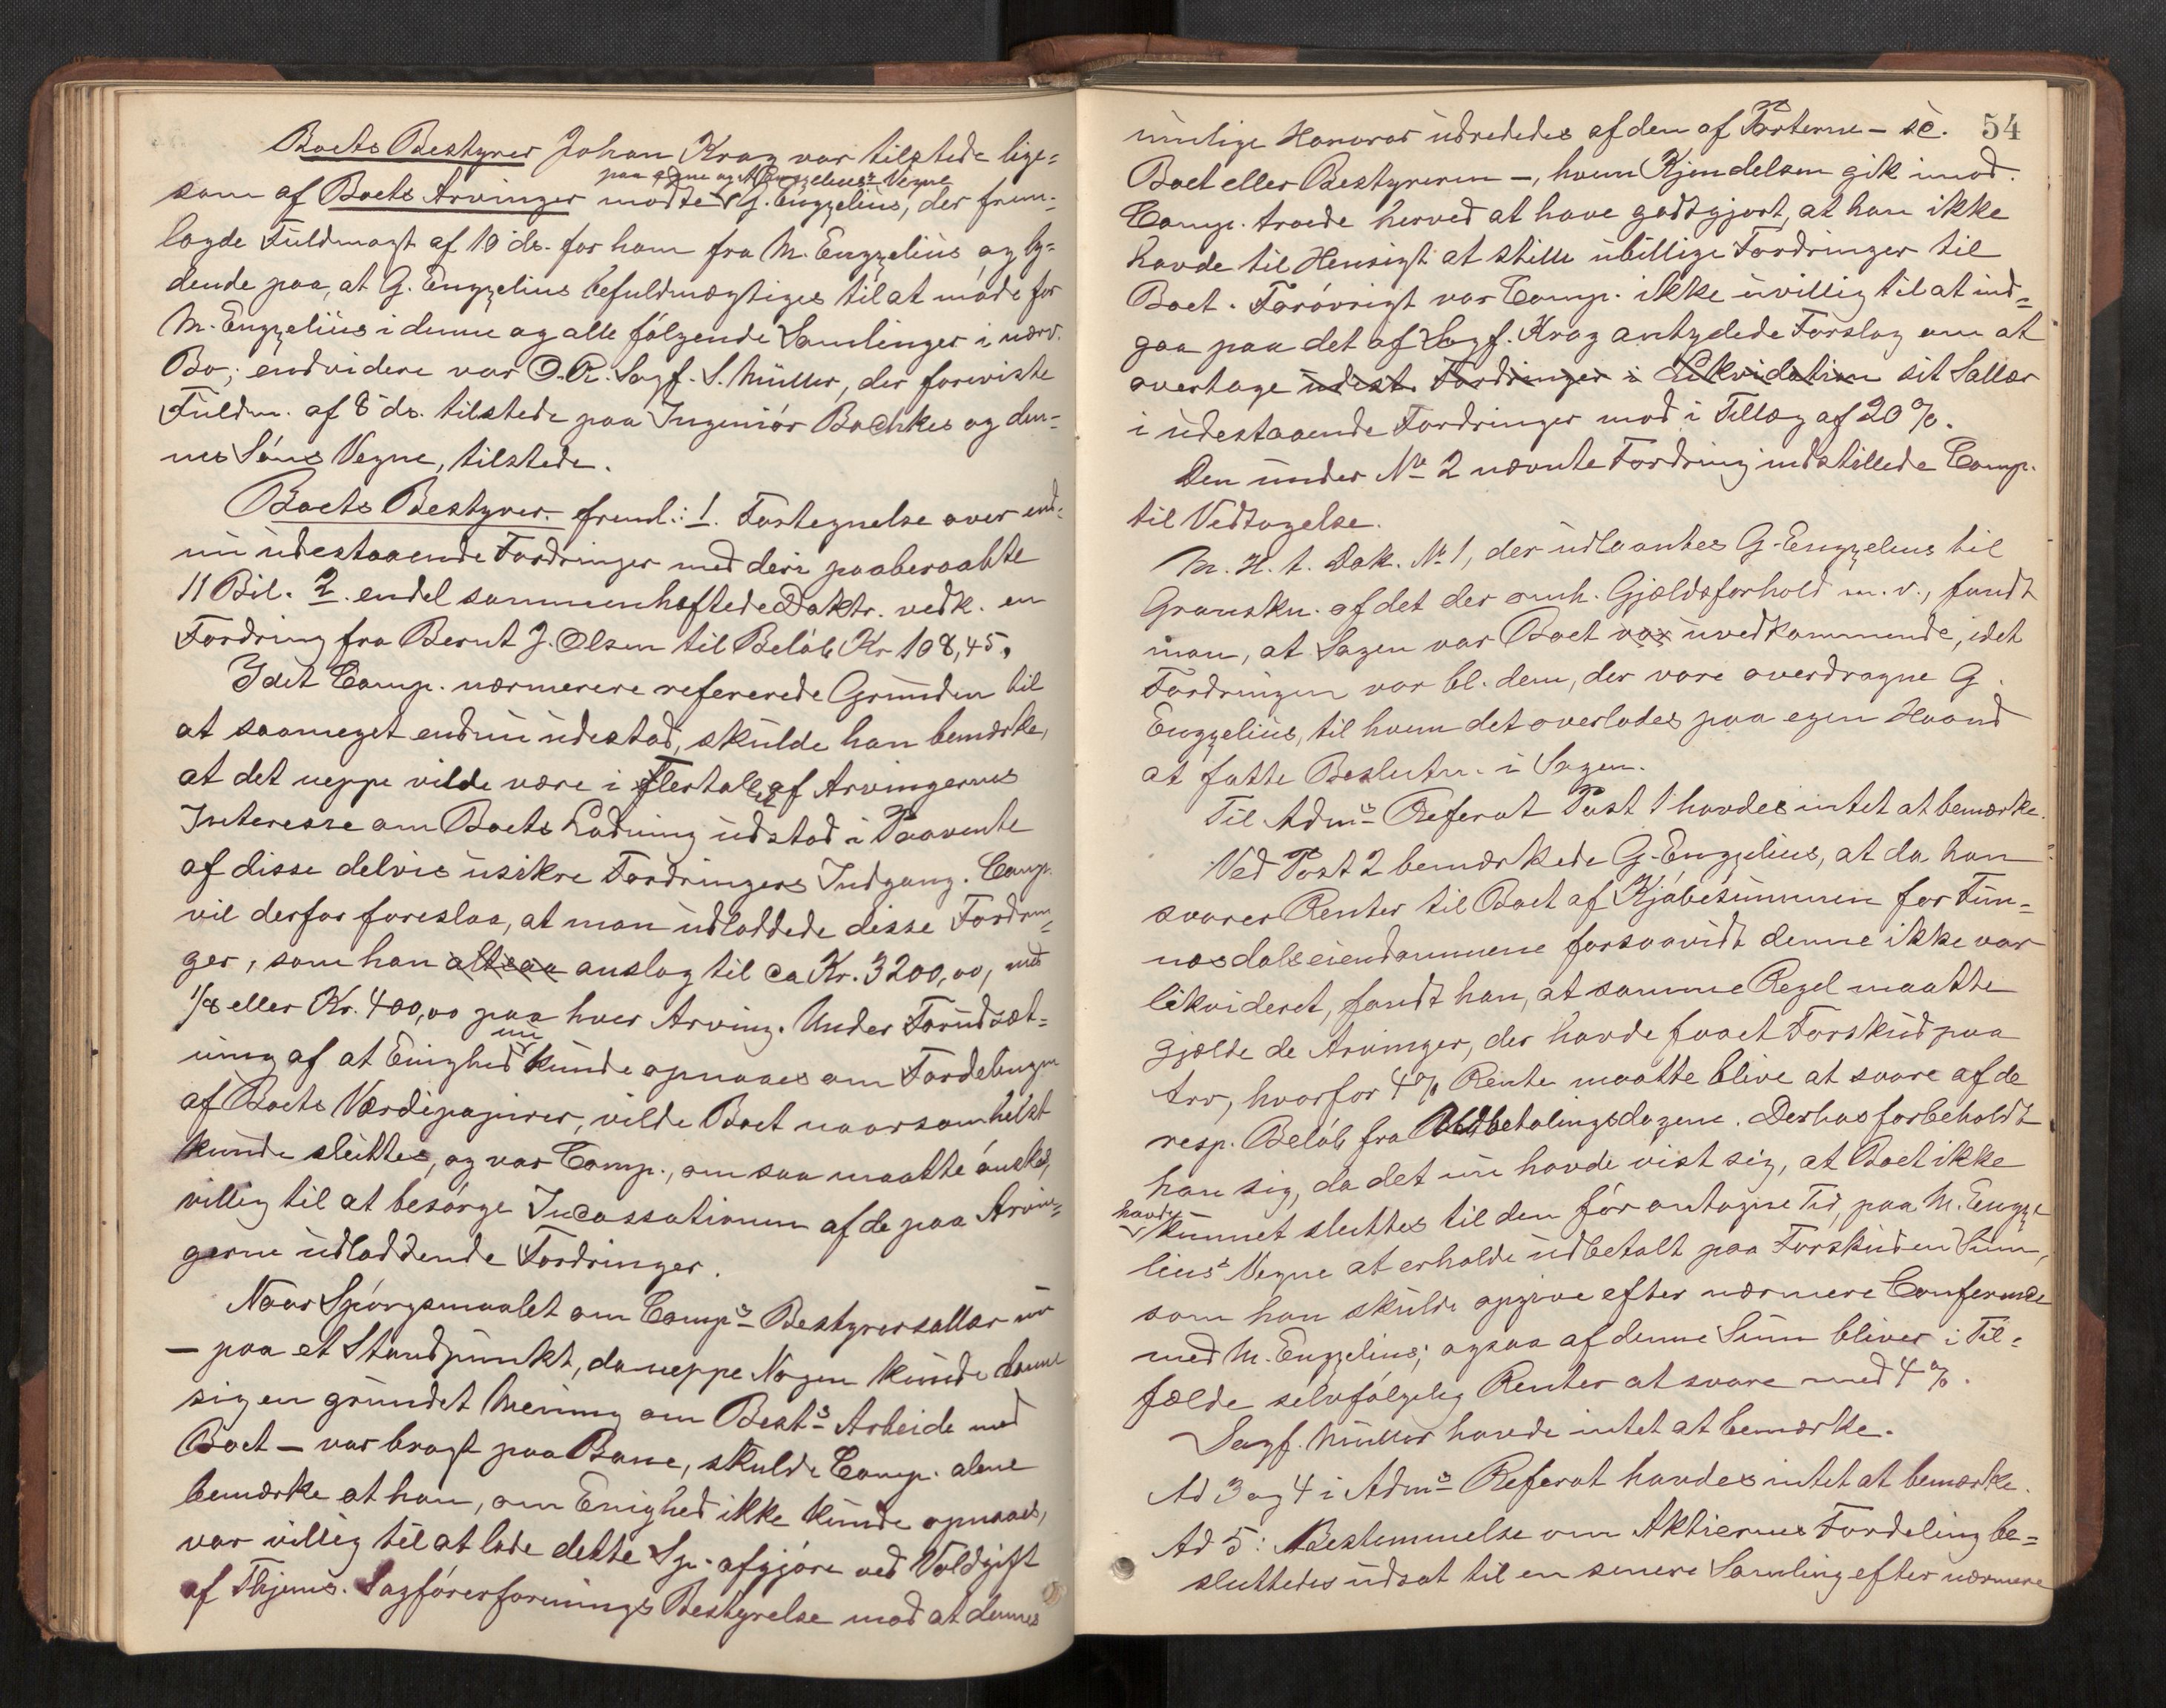 Boets Bestyrer Johan Krag var tilstede lige=
som af Boets Arvinger mødte paa egne og M Engzelius's Vegne G. Engzelius, der frem-
lagde Fuldmagt af 10 ds. for ham fra M. Engzelius og ly=
dende paa, at G. Engzelius befuldmægtiges til at møde for
M. Engzelius i denne og alle følgende Samlinger i nærv.
Bo; endvidere var O.R. Sagf. S. Müller, der foreviste
Fuldm. af 8 ds. tilstede paa Ingeniør Bachkes og den-
nes Søns Vegne, tilstede.
Boets Bestyrer. freml.: 1. Fortegnelse over end-
nu udestaaende Fordringer med deri paaberaabte
11 Bil. 2. endel sammenheftede Doktr. vedk. en
Fordring fra Bernt J. Olsen til Beløb Kr 108,45.
Idet Comp. nærmerere refererede Grunden til
at saameget endnu udestod, skulde han bemærke,
at det neppe vilde være i Flertallet af Arvingernes
Interesse om Boets Ladning udstod i Paavente
af disse delvis usikre Fordringers Indgang. Comp.
vil derfor foreslaa, at man udloddede disse Fordrin-
ger, som han altsaa anslog til ca Kr. 3200,00, med
1/8 eller Kr. 400,00 paa hver Arving. Under Forudsæt-
ning af at Enighed nu kunde opnaaes om Fordelingen
af Boets Værdipapirer, vilde Boet naarsomhelst
kunde sluttes, og var Comp., om saa maatte ønskes,
villig til at besørge Incassationen af de paa Arvin-
gerne udloddende Fordringer.
Naar Spørgsmaalet om Comp's Bestyrersallær nu
— paa et Standpunkt, da neppe Nogen kunde danne
sig en grundet Mening om Best's Arbeide med
Boet — var bragt paa Bane, skulde Comp. alene
bemærke at han, om Enighed ikke kunde opnaaes,
var villig til at lade dette Sp. afgjøre ved Voldgift
af Thjems. Sagførerforenings Bestyrelse mod at dennes
54
mulige Honorar udrededes af den af Parterne - sc.
Boet eller Bestyreren -, hvem Kjendelsen gik imod.
Comp. troede herved at have godtgjort, at han ikke
havde til Hensigt at stille ubillige Fordringer til
Boet. Forøvrigt var Comp. ikke uvillig til at ind-
gaa paa det af Sagf. Krag antydede Forslag om at
overtage udest. Fordringer i Likvidation sit Sallær
i udestaaende Fordringer mod i Tillæg af 20 %.
Den under No 2 nævnte Fordring indstillede Comp.
til Vedtagelse.
M. H. t. Dok. No 1, der udlaantes G. Engzelius til
Granskn. af det der omh. Gjældsforhold m. v., fandt
man, at Sagen var Boet var uvedkommende, idet
Fordringen var bl. dem, der vare overdragne G.
Engzelius, til hvem det overlodes paa egen Haand
at fatte Beslutn. i Sagen.
Til Adm's Referat Post 1 havdes intet at bemærke.
Ved Post 2 bemærkede G. Engzelius, at da han
svarer Renter til Boet af Kjøbesummen for Fun-
næsdalseiendommene forsaavidt denne ikke var
likvideret, fandt han, at samme Regel maatte
gjælde de Arvinger, der havde faaet Forskud paa
Arv, hvorfor 4 % Rente maatte blive at svare af de
resp. Beløb fra Udbetalingsdagene. Derhos forbeholdt
han sig, da det nu havde vist sig, at Boet ikke
havde kunnet sluttes til den før antagne Tid, paa M. Engze-
lius's Vegne at erholde udbetalt paa Forskud en Sum,
som han skulde opgive efter nærmere Conference
med M. Engzelius; ogsaa af denne Sum bliver i Til-
fælde selvfølgelig Renter at svare med 4 %.
Sagf. Müller havde intet at bemærke.
Ad 3 og 4 i Adm's Referat havdes intet at bemærke.
Ad 5: Bestemmelse om Aktiernes Fordeling be-
sluttedes udsat til en senere Samling efter nærmere